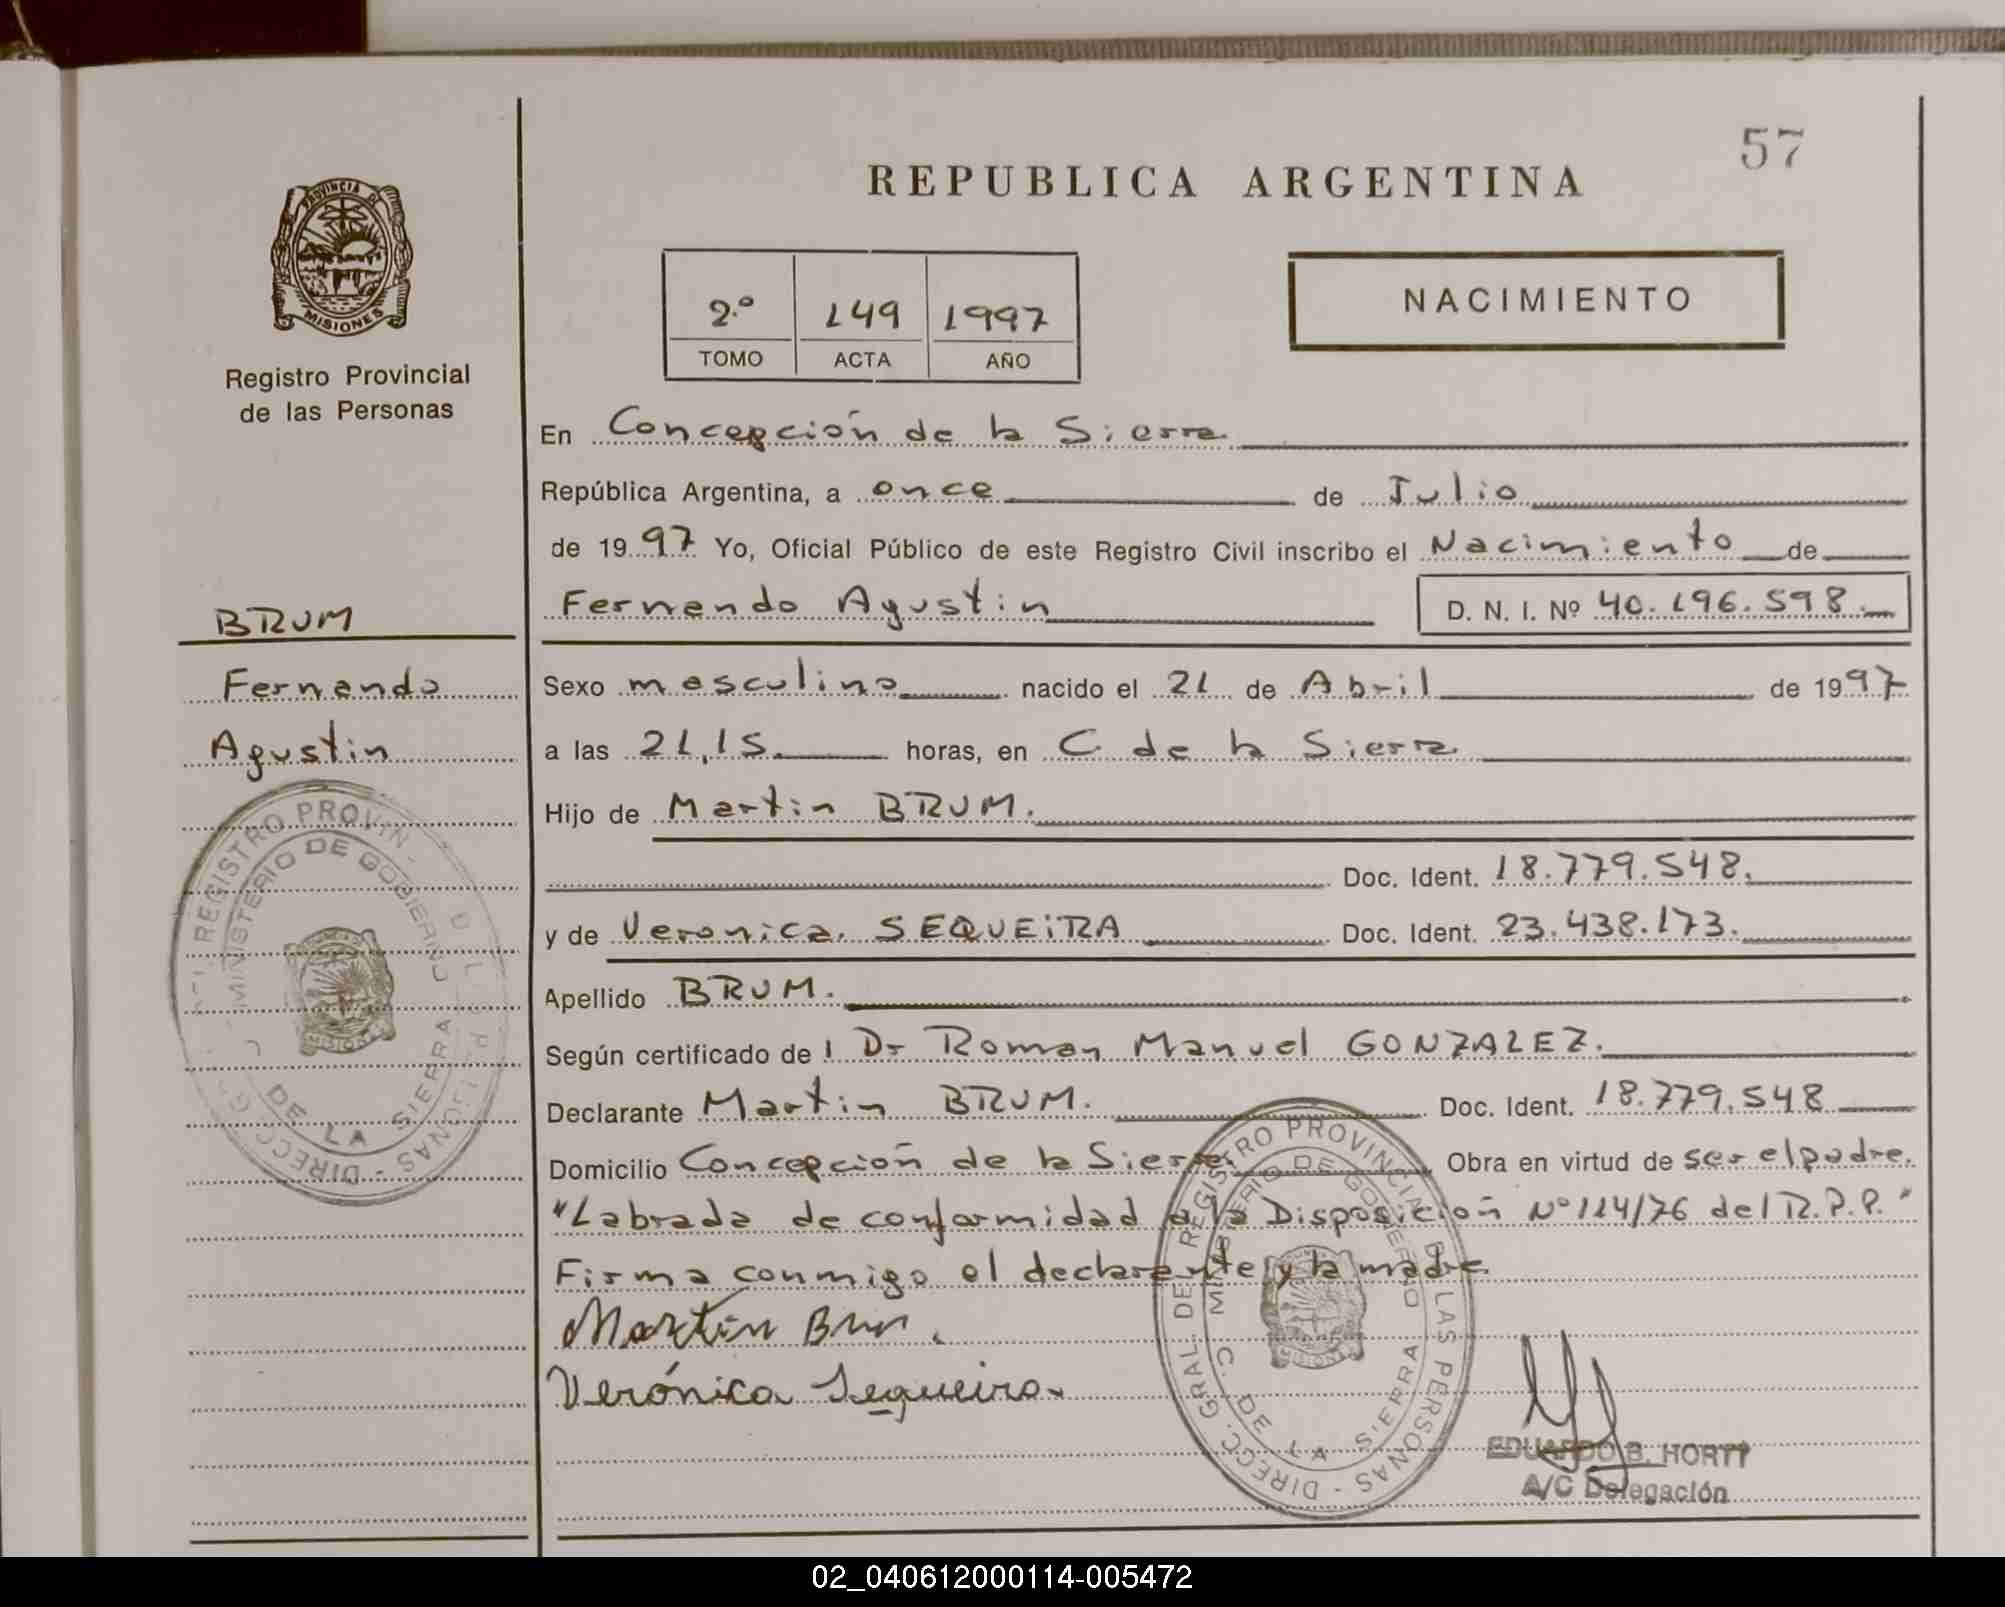 57
REPUBLICA ARGENTINA
PROVINCIA DE
MISIONES
Registro Provincial
de las Personas
2.º 149 1997
TOMO ACTA AÑO
NACIMIENTO
En Concepción de la Sierra
República Argentina, a once de Julio
de 1997 Yo, Oficial Público de este Registro Civil inscribo el Nacimiento de
Fernando Agustin D. N. I. Nº 40.196.598.
BRUM
Fernando
Agustin
Sexo masculino nacido el 21 de Abril de 1997
a las 21,15. horas, en C. de la Sierra
Hijo de Martin BRUM.
Doc. Ident. 18.779.548.
y de Veronica. SEQUEiRA Doc. Ident. 23.438.173.
Apellido BRUM.
Según certificado de l Dr Roman Manuel GONZALEZ.
Declarante Martin BRUM. Doc. Ident. 18.779.548
Domicilio Concepción de la Sierra Obra en virtud de ser el padre.
"Labrada de conformidad a la Disposición Nº 114/76 del R.P.P."
Firma conmigo el declarante y la madre
Martín Brum.
Verónica Sequeira
DIRECC. GRAL. DE REGISTRO PROVINCIAL DE LAS PERSONAS
MINISTERIO DE GOBIERNO
C. DE LA SIERRA
MISIONES
EDUARDO B. HORTT
A/C Delegación
02_040612000114-005472